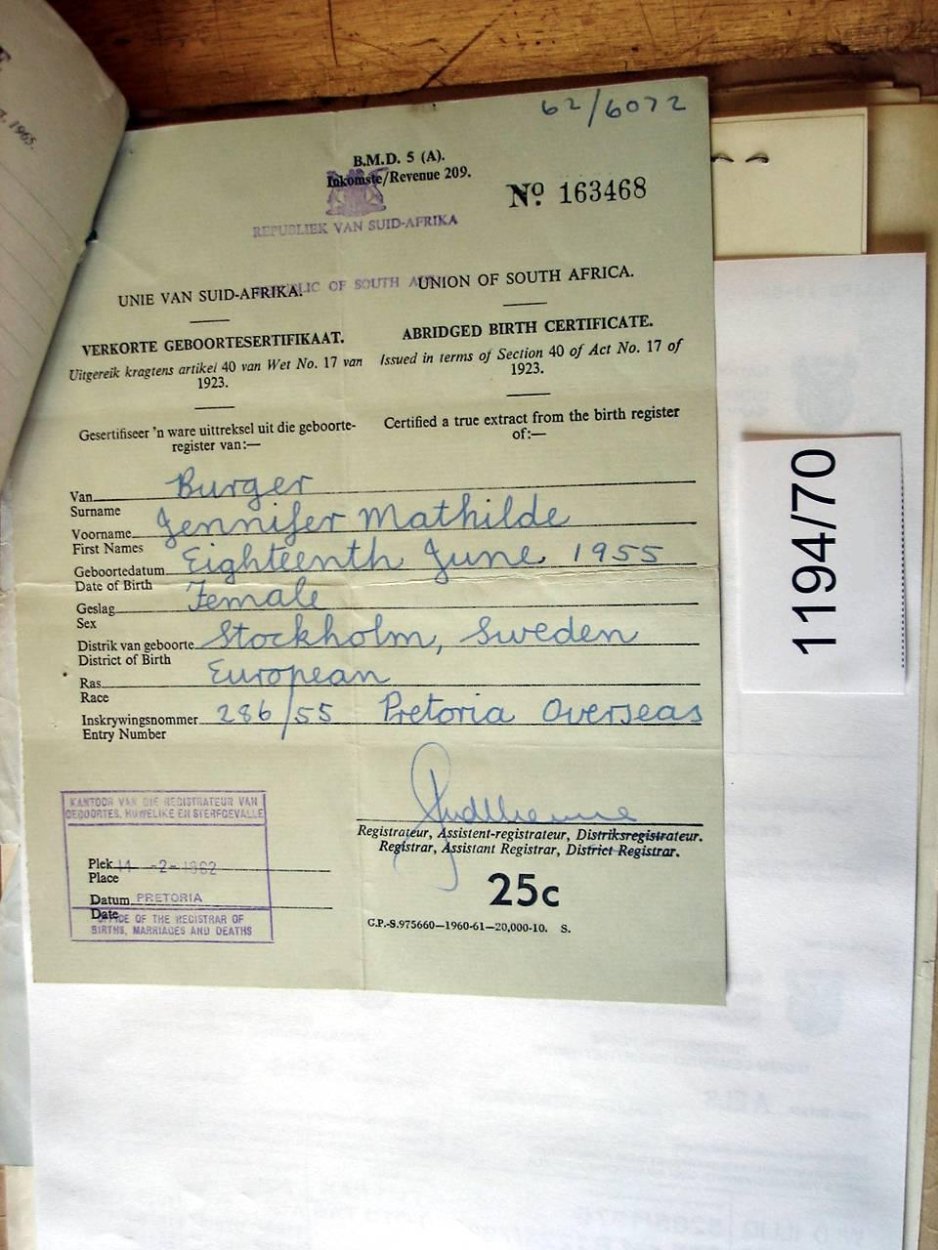 1965.
62/6072
B.M.D. 5 (A).
Inkomste/Revenue 209.
Nº. 163468
REPUBLIEK VAN SUID-AFRIKA
REPUBLIC OF SOUTH AFRICA
UNIE VAN SUID-AFRIKA.
UNION OF SOUTH AFRICA.
VERKORTE GEBOORTESERTIFIKAAT.
Uitgereik kragtens artikel 40 van Wet No. 17 van
1923.
ABRIDGED BIRTH CERTIFICATE.
Issued in terms of Section 40 of Act No. 17 of
1923.
Gesertifiseer 'n ware uittreksel uit die geboorte-
register van:—
Certified a true extract from the birth register
of:—
Van Burger
Surname
Voorname Jennifer Mathilde
First Names
Geboortedatum Eighteenth June 1955
Date of Birth
Geslag Female
Sex
Distrik van geboorte Stockholm, Sweden
District of Birth
Ras European
Race
Inskrywingsnommer 286/55 Pretoria Overseas
Entry Number
KANTOOR VAN DIE REGISTRATEUR VAN
GEBOORTES, HUWELIKE EN STERFGEVALLE
Plek 14 -2-1962
Place
Datum PRETORIA
Date
OFFICE OF THE REGISTRAR OF
BIRTHS, MARRIAGES AND DEATHS
Registrateur, Assistent-registrateur, Distriksregistrateur.
Registrar, Assistant Registrar, District Registrar.
25c
G.P.-S.975660—1960-61—20,000-10. S.
1194/70